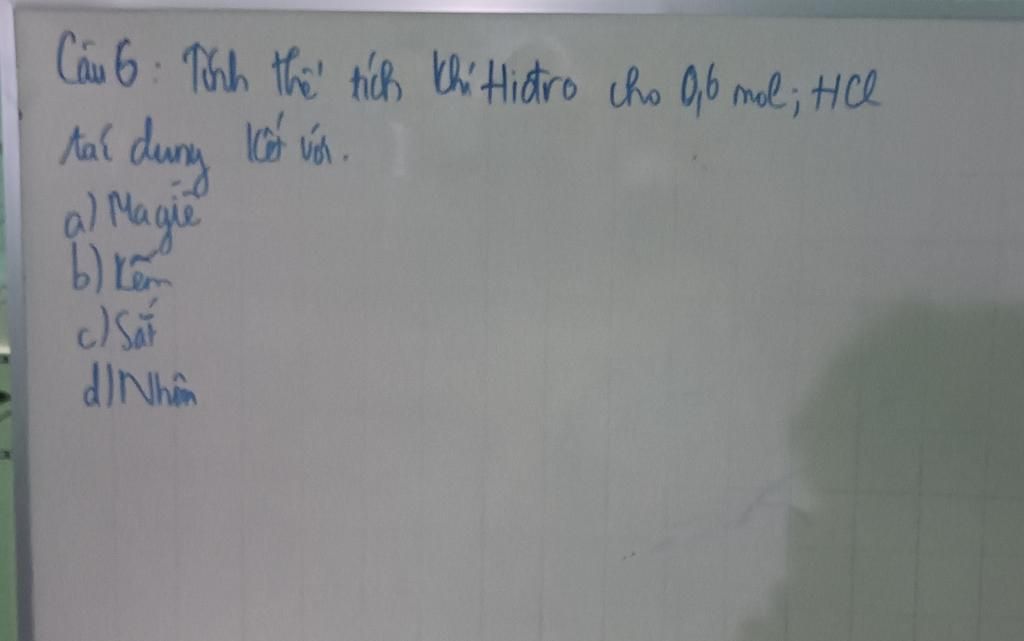 Câu 6: Tính thể tích khí Hiđro cho 0,6 mol; HCl
tác dụng hết với.
a) Magiê
b) Kẽm
c) Sắt
d) Nhôm